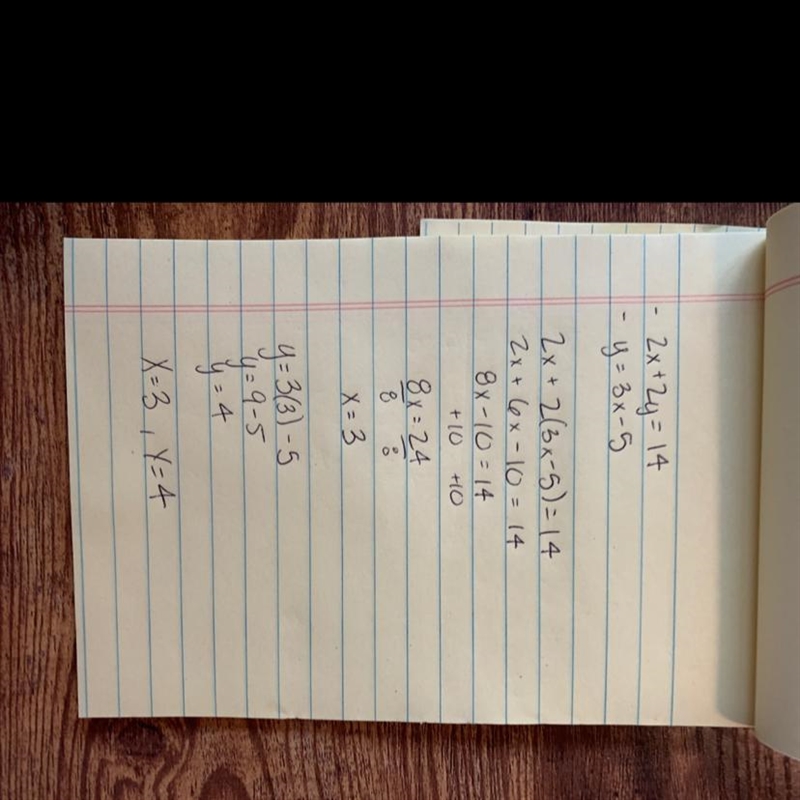 - 2x+2y=14
- y=3x-5
2x+2(3x-5)=14
2x+6x-10=14
8x-10=14
+10 +10
8x=24
8 8
x=3
y=3(3)-5
y=9-5
y=4
X=3, Y=4